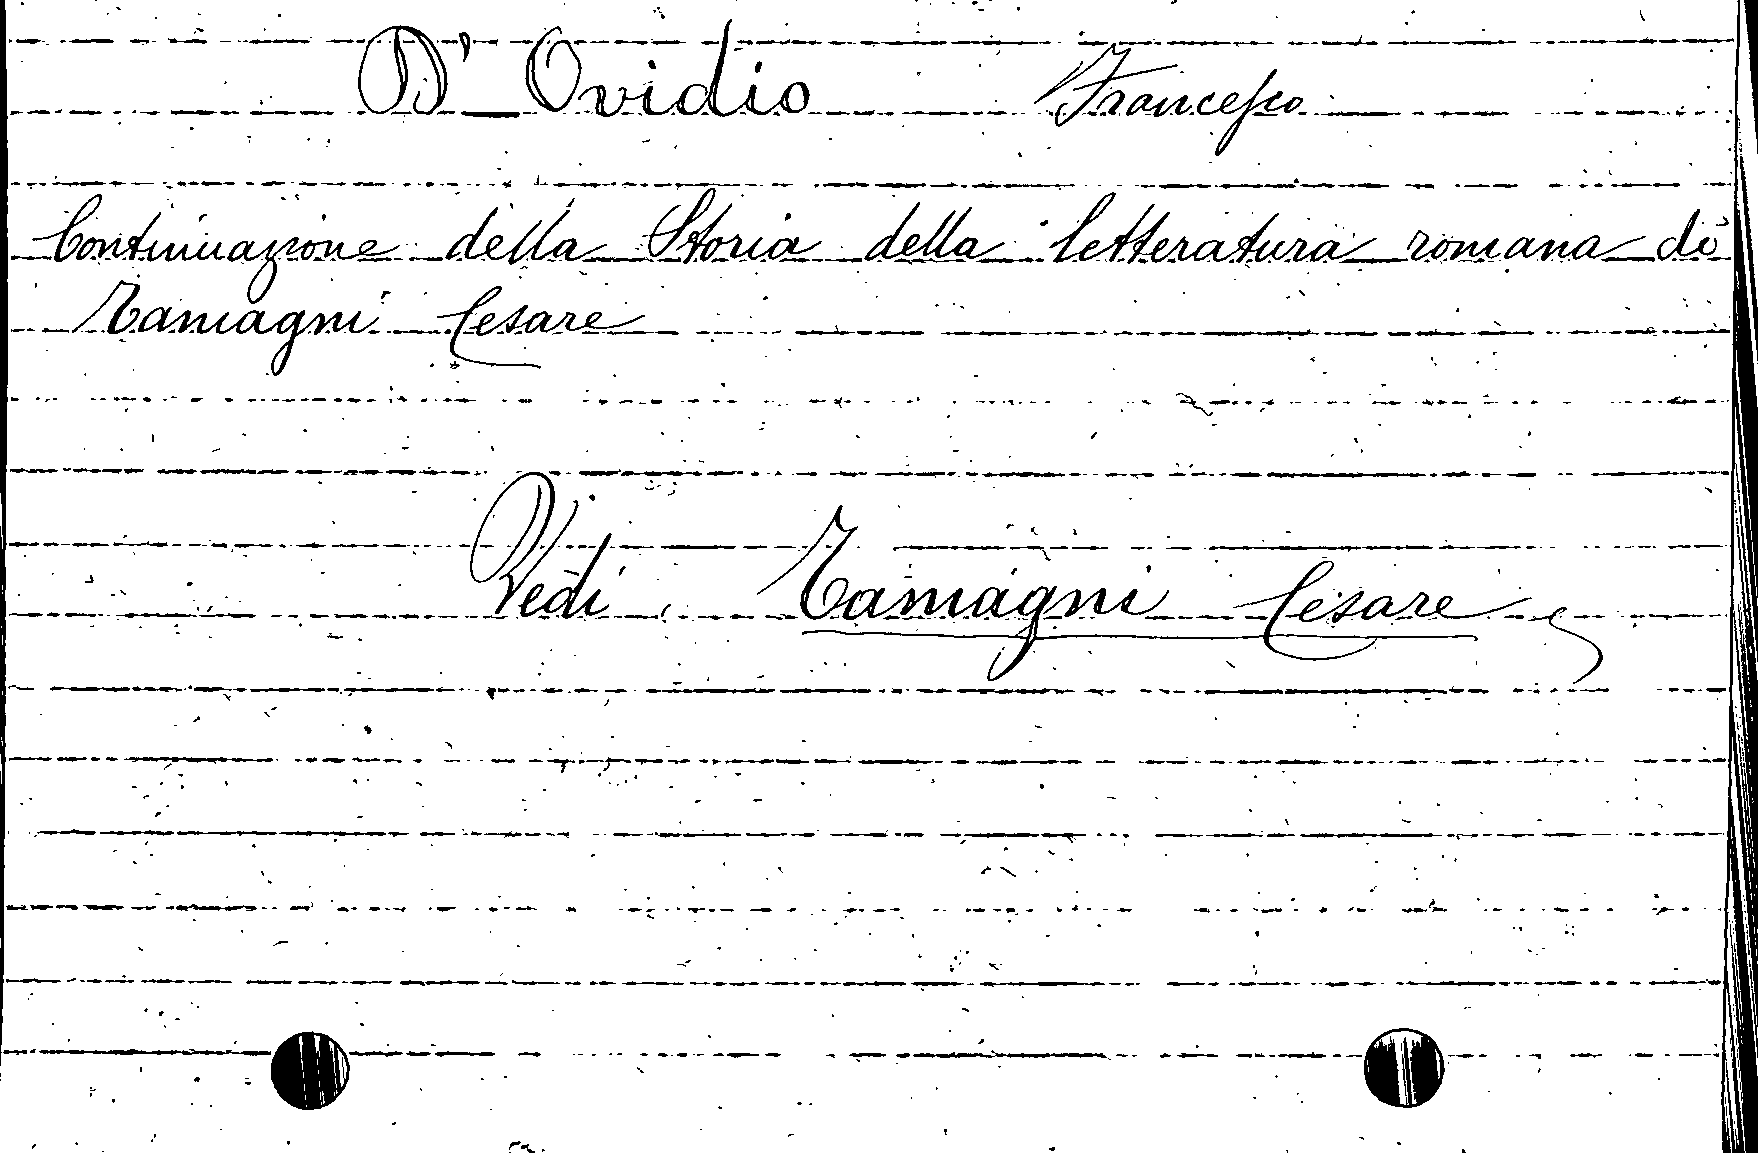 D'Ovidio Francesco
Continuazione della Storia della letteratura romana di
Tamagni Cesare
Vedi Tamagni Cesare